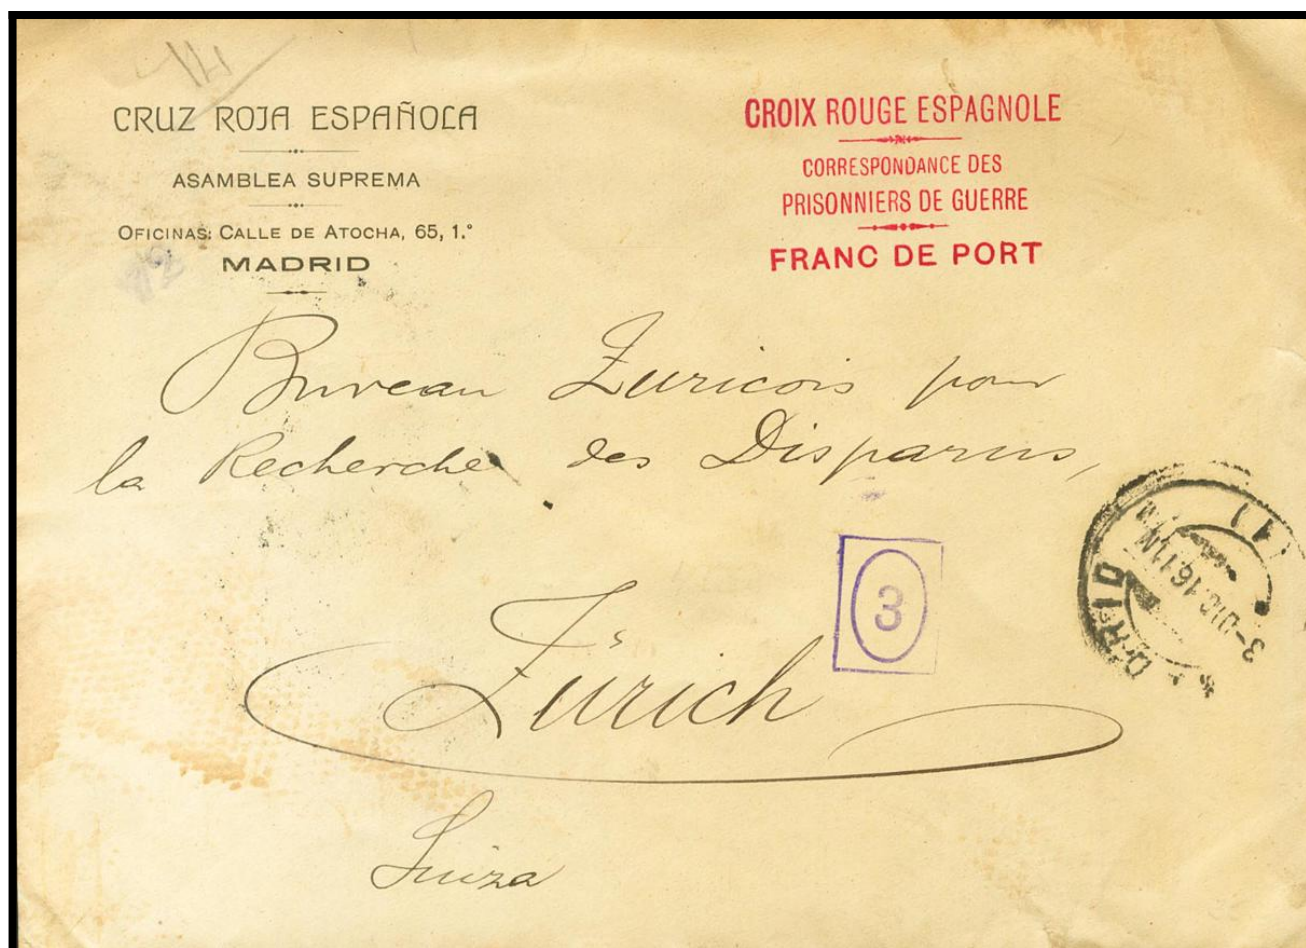 CRUZ ROJA ESPAÑOLA
ASAMBLEA SUPREMA
OFICINAS: CALLE DE ATOCHA, 65, 1.º
MADRID
CROIX ROUGE ESPAGNOLE
CORRESPONDANCE DES
PRISONNIERS DE GUERRE
FRANC DE PORT
Bureau Zuricois pour
la Recherche des Disparus,
3
Zürich
Suiza
3-DIC.16 11N